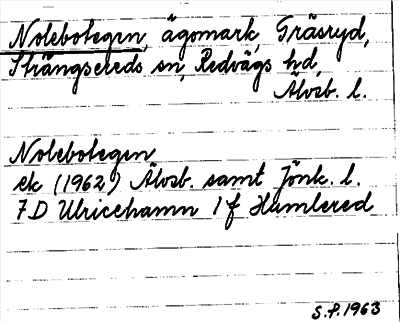 Nolebotegen, ägomark, Gräsryd,
Strängsereds sn, Redvägs hd,
Älvsb. l.
Nolebotegen
ek (1962) Älvsb. samt Jönk. l.
7 D Ulricehamn 1 f Humlered
S.P. 1963